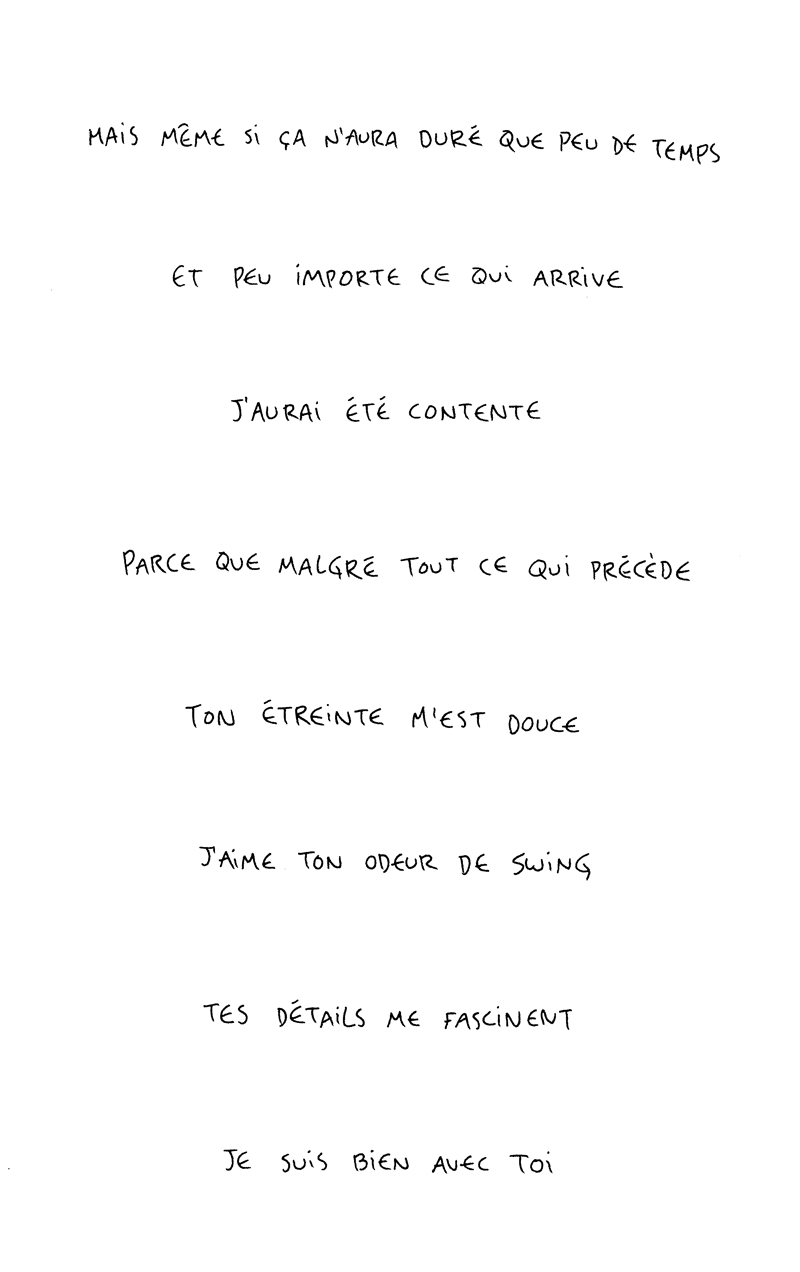 MAIS MÊME SI ÇA N'AURA DURÉ QUE PEU DE TEMPS
ET PEU IMPORTE CE QUI ARRIVE
J'AURAI ÉTÉ CONTENTE
PARCE QUE MALGRÉ TOUT CE QUI PRÉCÈDE
TON ÉTREINTE M'EST DOUCE
J'AIME TON ODEUR DE SWING
TES DÉTAILS ME FASCINENT
JE SUIS BIEN AVEC TOI